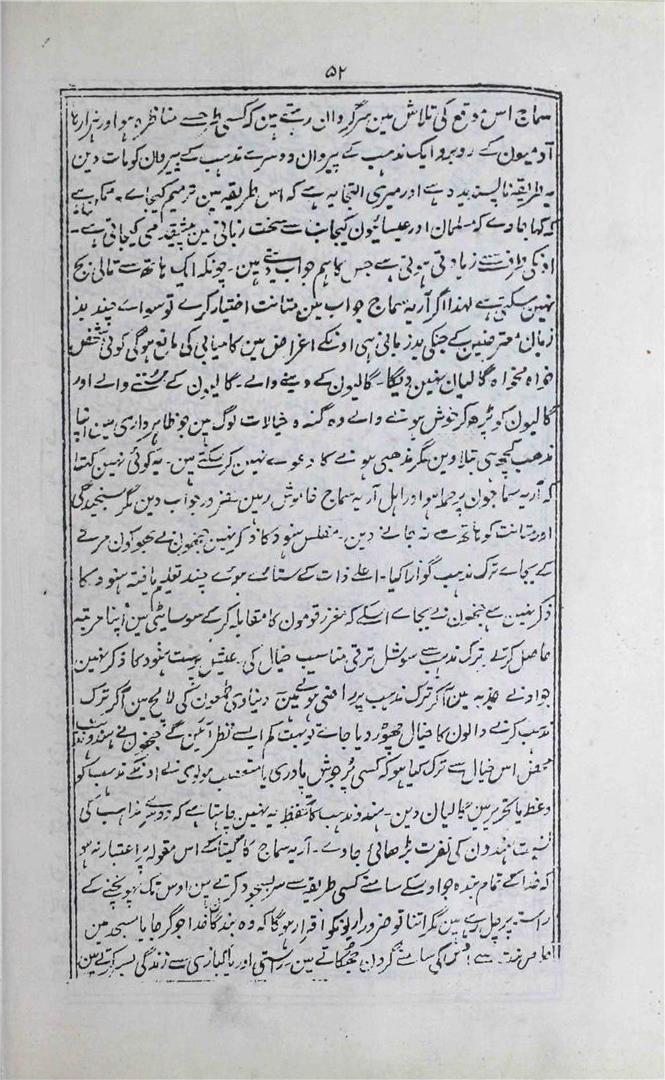 ۵۲
سماج اس موقع کی تلاش مین سرگردان رہتے ہین کہ کسی طرح سے مناظرہ ہو اور ہزارہا
آدمیون کے روبرو ایک مذہب کے پیروان دوسرے مذہب کے پیروان کو مات دین
یہ طریقہ ناپسندیدہ ہے اور میری التجا یہ ہے کہ اس طریقہ مین ترمیم کیجاے۔ ممکن ہے
کہ کہا جاوے کہ مسلمان اور عیسائیون کیجانب سے سخت زبانی مین پیشقدمی کیجاتی ہے۔
اونکی طرف سے زیادتی ہوتی ہے جس کا ہم جواب دیتے ہین۔ چونکہ ایک ہاتھ سے تالی بج
نہین سکتی ہے لہذا اگر آریہ سماج جواب مین متانت اختیار کرے تو سواے چند بد
زبان معترضین کے جنکی بدزبانی ہی اونکے اغراض مین کامیابی کی مانع ہوگی کوئی شخص
خواہ مخواہ گالیان نہین دیگا۔ گالیون کے دینے والے۔ گالیون کے سننے والے اور
گالیون کو پڑھ کر خوش ہونے والے وہ گندہ خیالات لوگ ہین جو ظاہرداری مین اپنا
مذہب کچھ ہی بتلاوین مگر مذہبی ہونے کا دعوے نہین کرسکتے ہین۔ یہ کوئی نہین کہتا
کہ آریہ سماجون پر حملہ ہو اور اہل آریہ سماج خاموش رہین ضرور جواب دین مگر سنجیدگی
اور متانت کو ہاتھ سے نہ جانے دین۔ مفلس ہنود کا ذکر نہین جنھون نے بھوکون مرنے
کے بجاے ترک مذہب گوارا کیا۔ اعلے ذات کے ستائے ہوے چند تعلیم یافتہ ہنود کا
ذکر نہین ہے جنھون نے بجاے اسکے کہ معزز قومون کا مقابلہ کرکے سوسایٹی مین اپنا مرتبہ
حاصل کرتے ترک مذہب سے سوشل ترقی مناسب خیال کی۔ عیش پرست ہنود کا ذکر نہین
جو ادنے جذبہ مین آکر ترک مذہب پر راضی ہوتے ہین دنیاوی طمعون کی لالچ مین آکر ترک
مذہب کرنے والون کا خیال چھوڑ دیا جاے تو بہت کم ایسے نظر آئین گے جنھون نے ہندو مذہب
محض اس خیال سے ترک کیا ہو کہ کسی پرجوش پادری یا متعصب مولوی نے اونکے مذہب کو
وعظ یا تحریر مین گالیان دین۔ ہندو مذہب کا تحفظ یہ نہین چاہتا ہے کہ دوسرے مذاہب کی
نسبت ہندون کی نفرت بڑھائی جاوے۔ آریہ سماج کا گیتا کے اس مقولہ پر اعتبار نہ ہو
کہ خدا کے تمام بندہ جو اوسکے سامنے کسی طریقہ سے سربسجود کرتے ہین اوس تک پہونچنے کے
راستہ پر چل رہے ہین مگر اتنا تو ضرور اونکو اقرار ہوگا کہ وہ بندگان خدا جو گرجا یا مسجد مین
سے اوس کی سامنے گردن جھکاتے ہین راستی اور پاکبازی سے زندگی بسر کرتے ہین